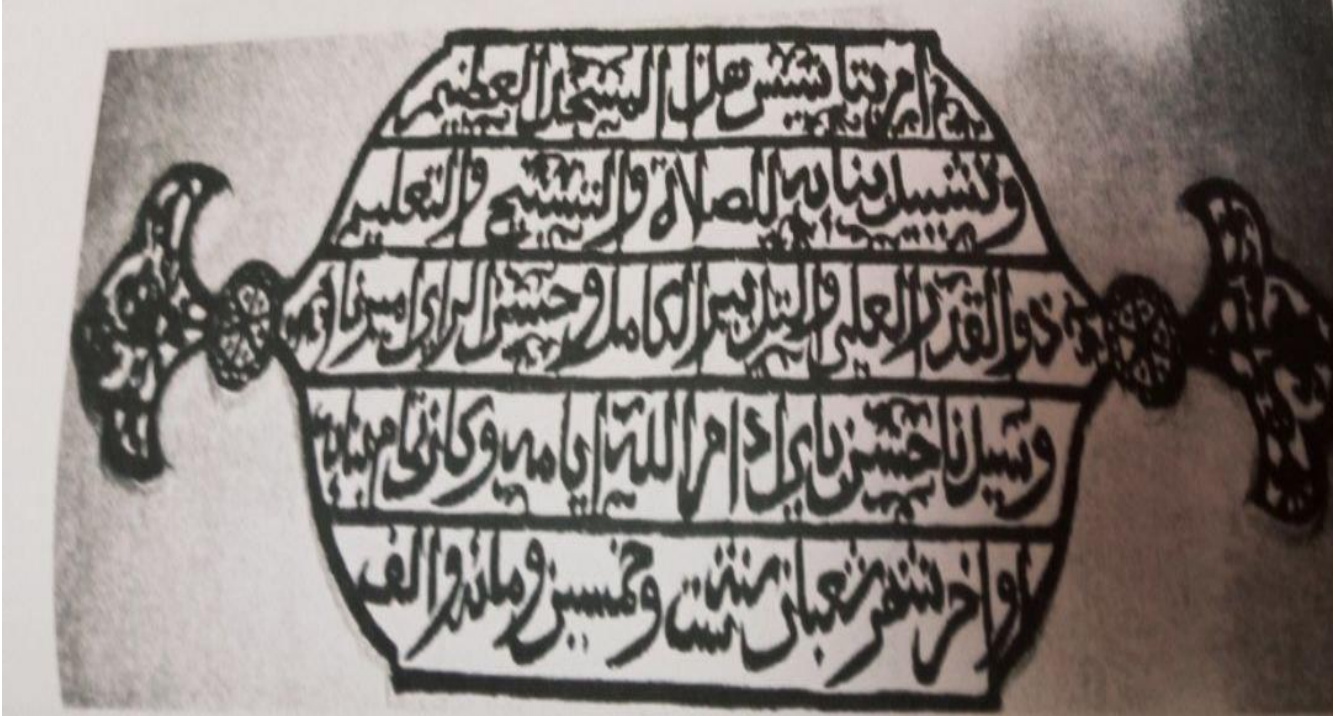 أمر بتأسيس هذا المسجد العظيم
وتشييد بنايه للصلاة والتسبيح والتعليم
ذو القدر العلي والتدبير الكامل وحسن الراي اميرنا
وسيدنا حسين باي ادام الله ايامه وكان تمامه
اواخر شهر شعبان سنة ست وخمسين ومائة والف